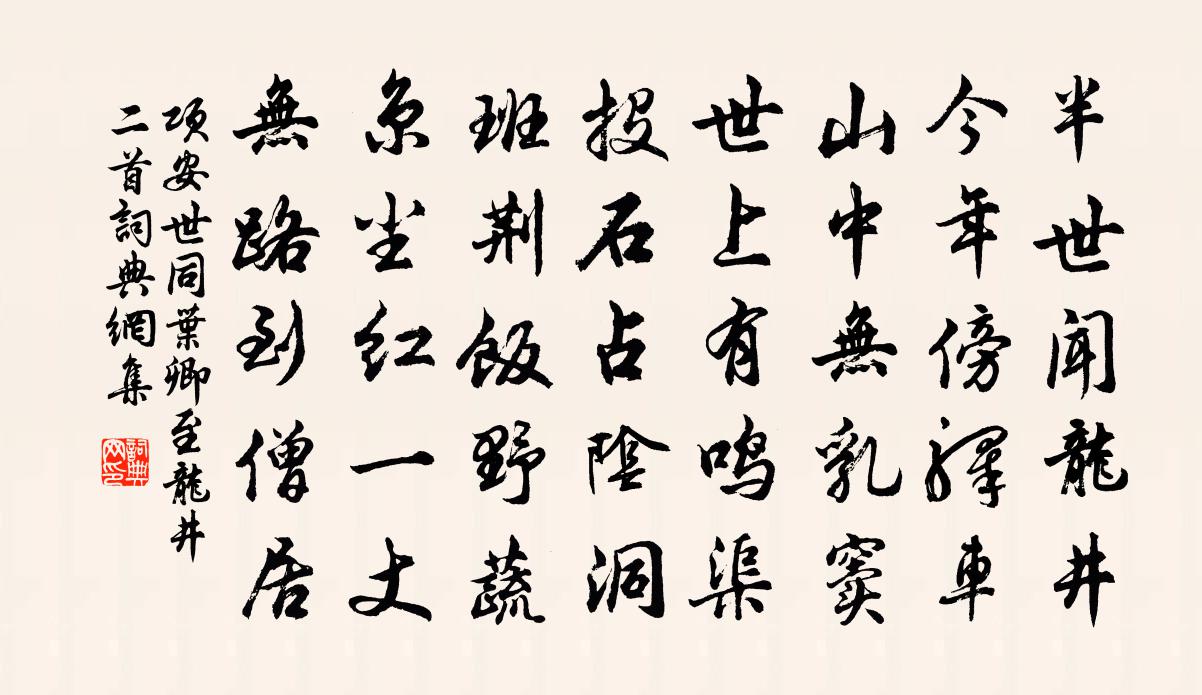 半世闻龍井
今年傍驛車
山中無乳窦
世上有鸣渠
投石占陰洞
班荆飯野蔬
京尘红一丈
無路到僧居
項安世同葉卿至龍井
二首詞典網集
詞典網印